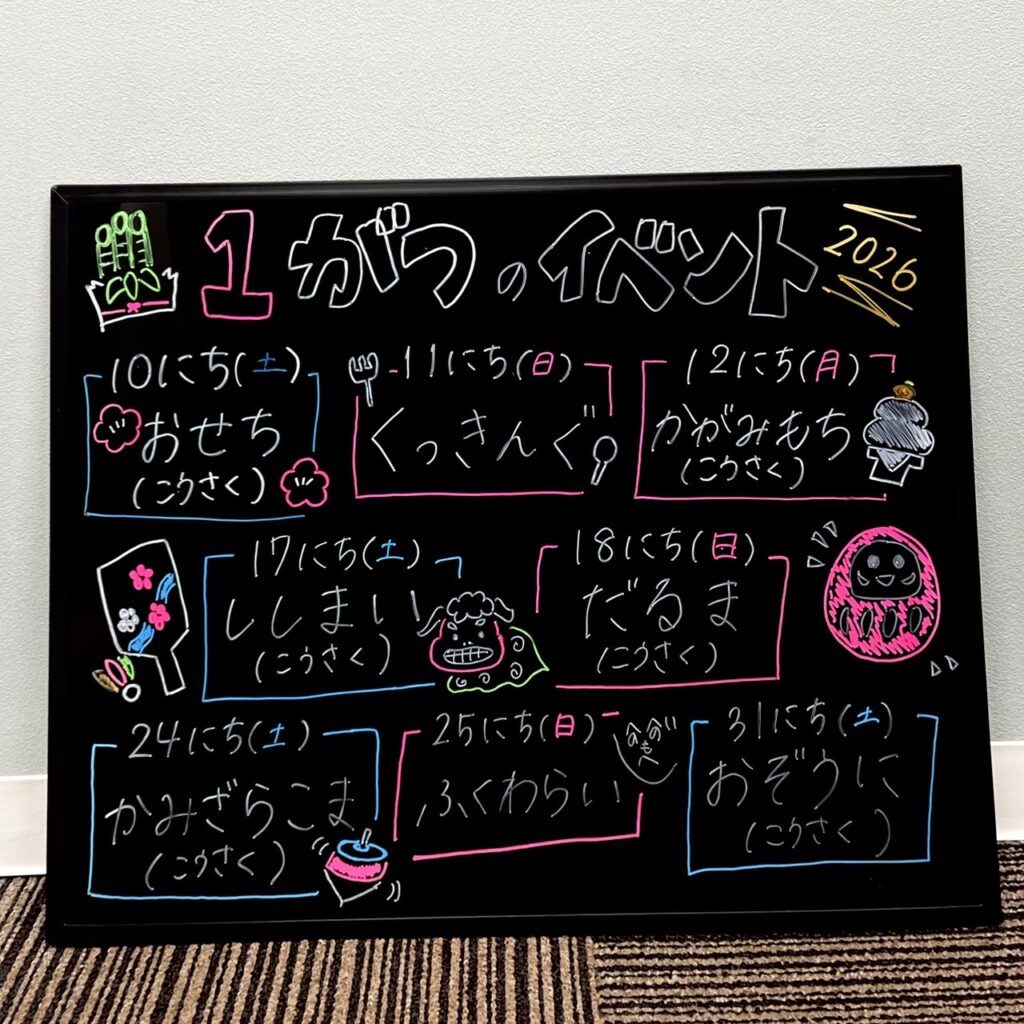 1がつのイベント 2026
10にち(土)
おせち
(こうさく)
11にち(日)
くっきんぐ
12にち(月)
かがみもち
(こうさく)
17にち(土)
ししまい
(こうさく)
18にち(日)
だるま
(こうさく)
24にち(土)
かみざらこま
(こうさく)
25にち(日)
ふくわらい
31にち(土)
おぞうに
(こうさく)